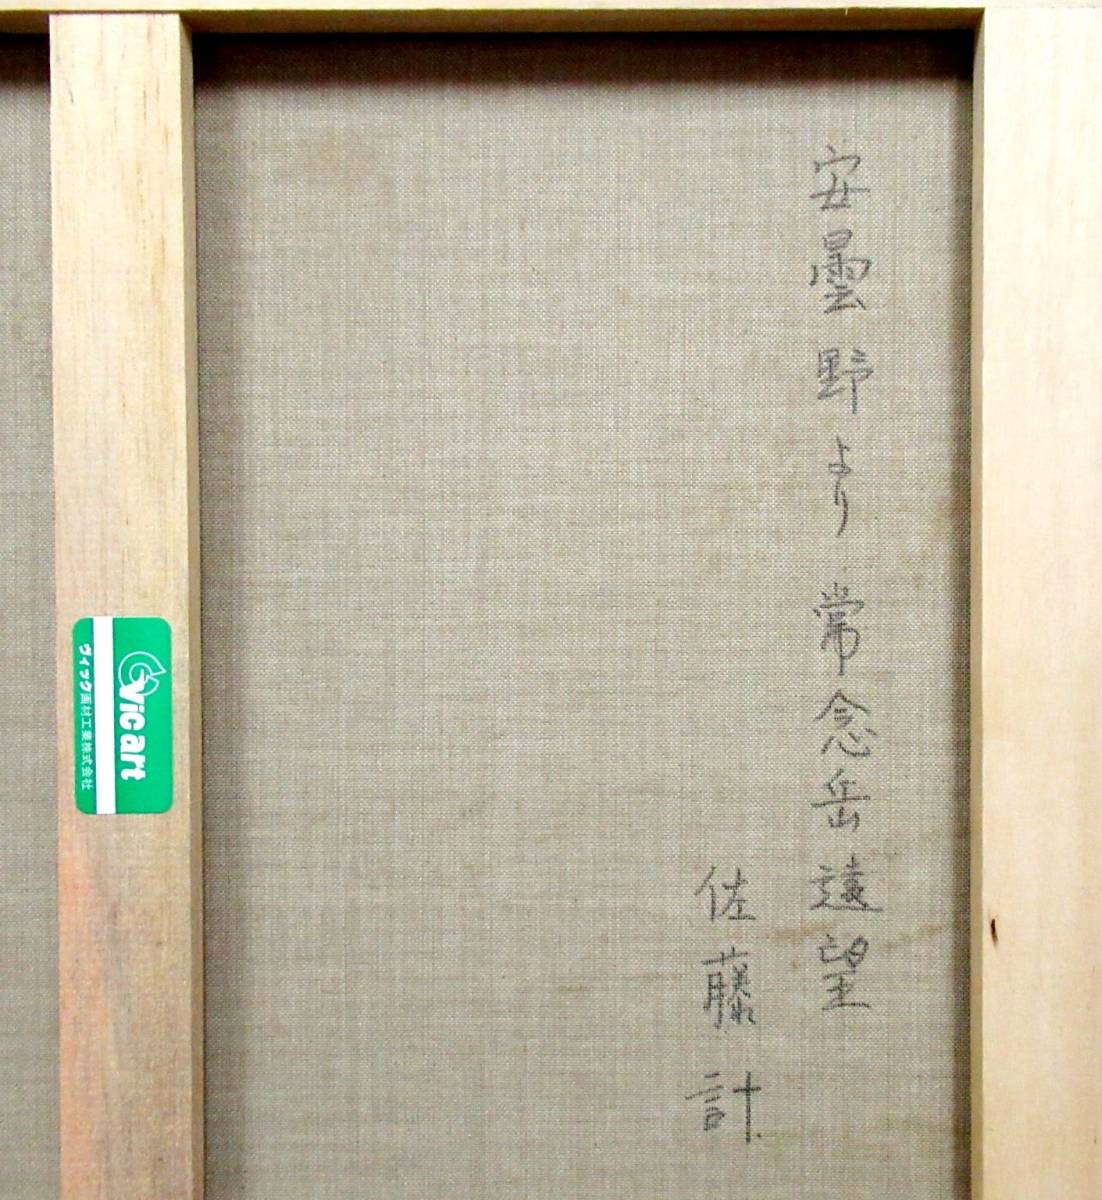 安曇野より 常念岳遠望
佐藤 計
Vicart
ヴィック画材工業株式会社